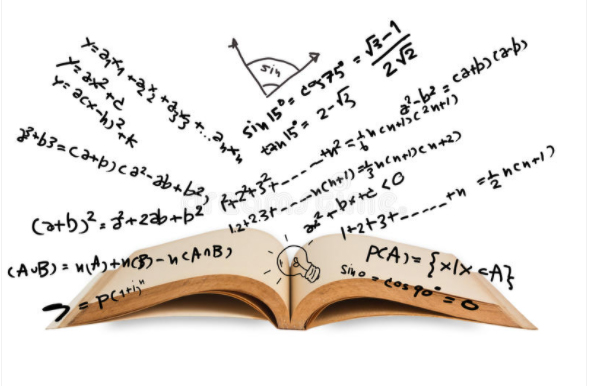 y=a₁x₁+a₂x₂+a₃x₃+...aₙxₙ
y=ax²+c
y=a(x-h)²+k
sin
sin15°=cos75°=√3-1/2√2
tan15°=2-√3
a²-b²=(a+b)(a-b)
a³+b3=(a+b)(a²-ab+b²)
1²+2²+3²+-----+n²=1/6n(n+1)(2n+1)
1.2+2.3+----n(n+1)=1/3n(n+1)(n+2)
(a+b)²=a²+2ab+b²
ax²+b+c<0
1+2+3+-----+n=1/2n(n+1)
(A∪B)=n(A)+n(B)-n(A∩B)
P(A)={x|x⊂A}
sin0=cos90°=0
=P(1+i)ⁿ